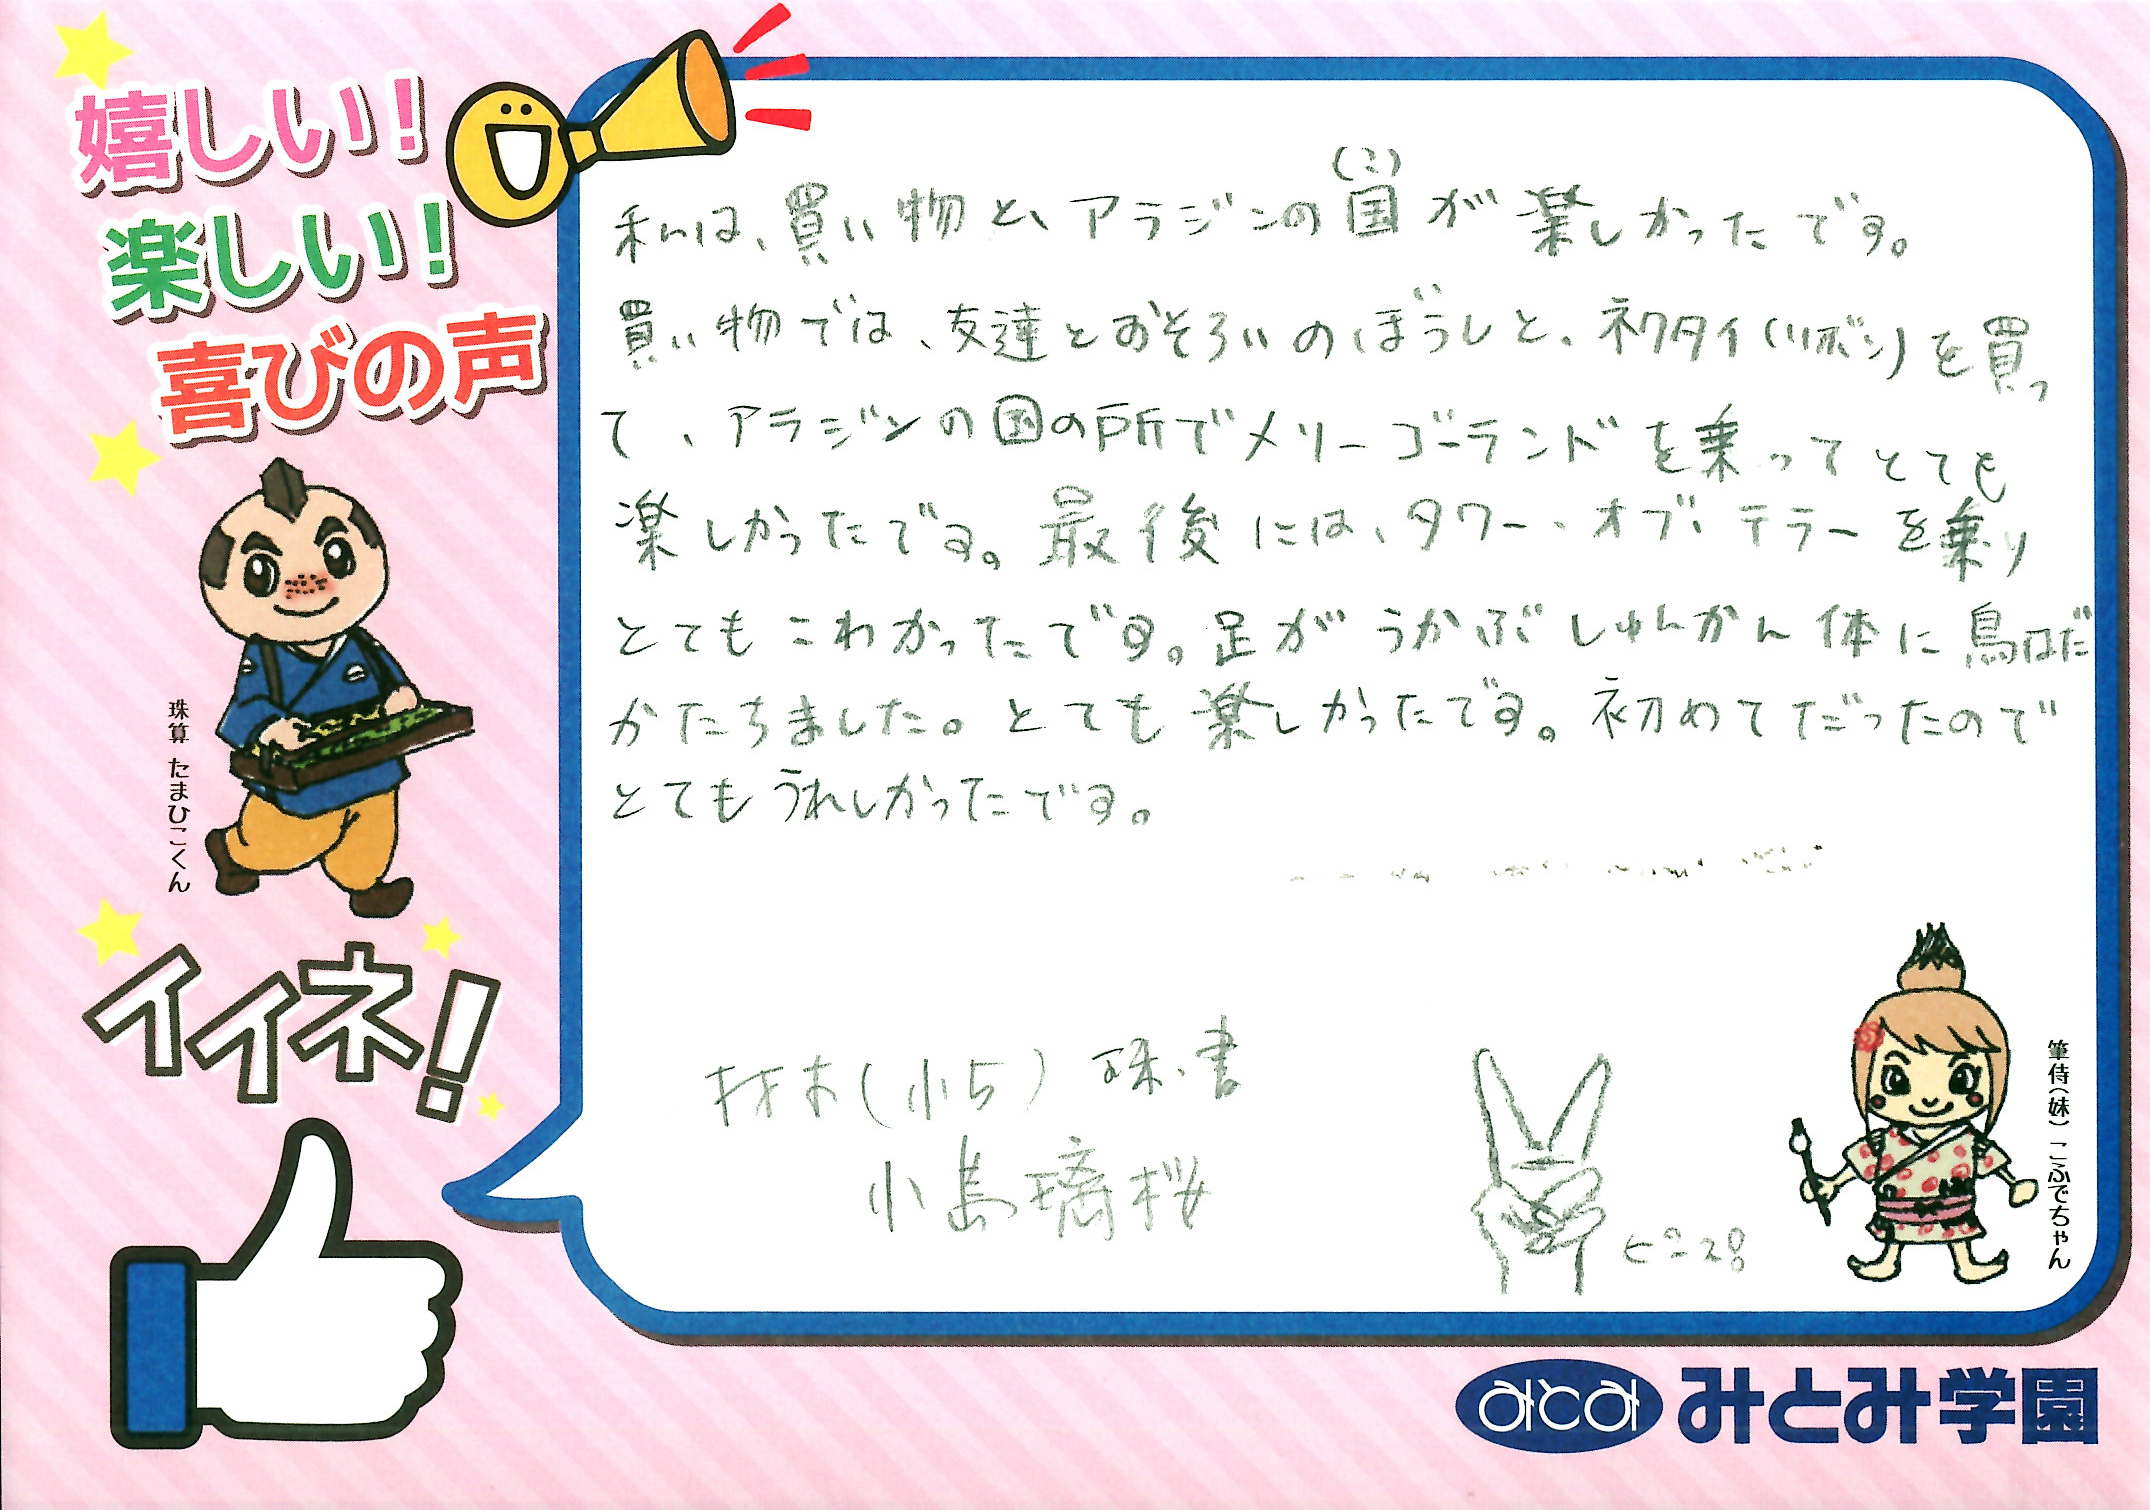 嬉しい!
楽しい!
喜びの声
珠算 たまひこくん
イイネ!
(こ)
私は、買い物と、アラジンの国が楽しかったです。
買い物では、友達とおそろいのぼうしと、ネクタイ(リボン)を買っ
て、アラジンの国の所でメリーゴーランドを乗ってとても
楽しかったです。最後には、タワー・オブ・テラーを乗り
とてもこわかったです。足がうかぶしゅんかん体に鳥はだ
がたちました。とても楽しかったです。初めてだったので
とてもうれしかったです。
(小5) 珠・書
小島璃桜
ピース
筆侍(妹) こふでちゃん
みとみ みとみ学園